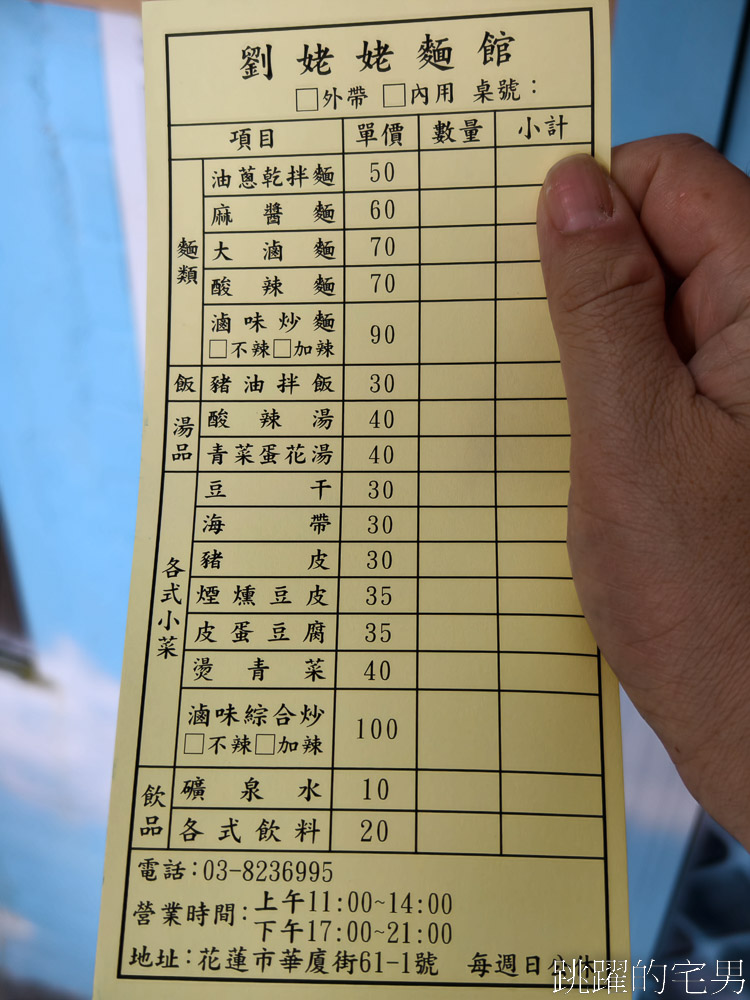 劉姥姥麵館
□外帶 □內用 桌號：
項目 單價 數量 小計
麵類
油蔥乾拌麵 50
麻醬麵 60
大滷麵 70
酸辣麵 70
滷味炒麵 90
□不辣□加辣
飯 豬油拌飯 30
湯品
酸辣湯 40
青菜蛋花湯 40
各式小菜
豆干 30
海帶 30
豬皮 30
煙燻豆皮 35
皮蛋豆腐 35
燙青菜 40
滷味綜合炒 100
□不辣□加辣
飲品
礦泉水 10
各式飲料 20
電話：03-8236995
營業時間：上午11:00~14:00
下午17:00~21:00
地址：花蓮市華廈街61-1號 每週日公休
跳躍的宅男